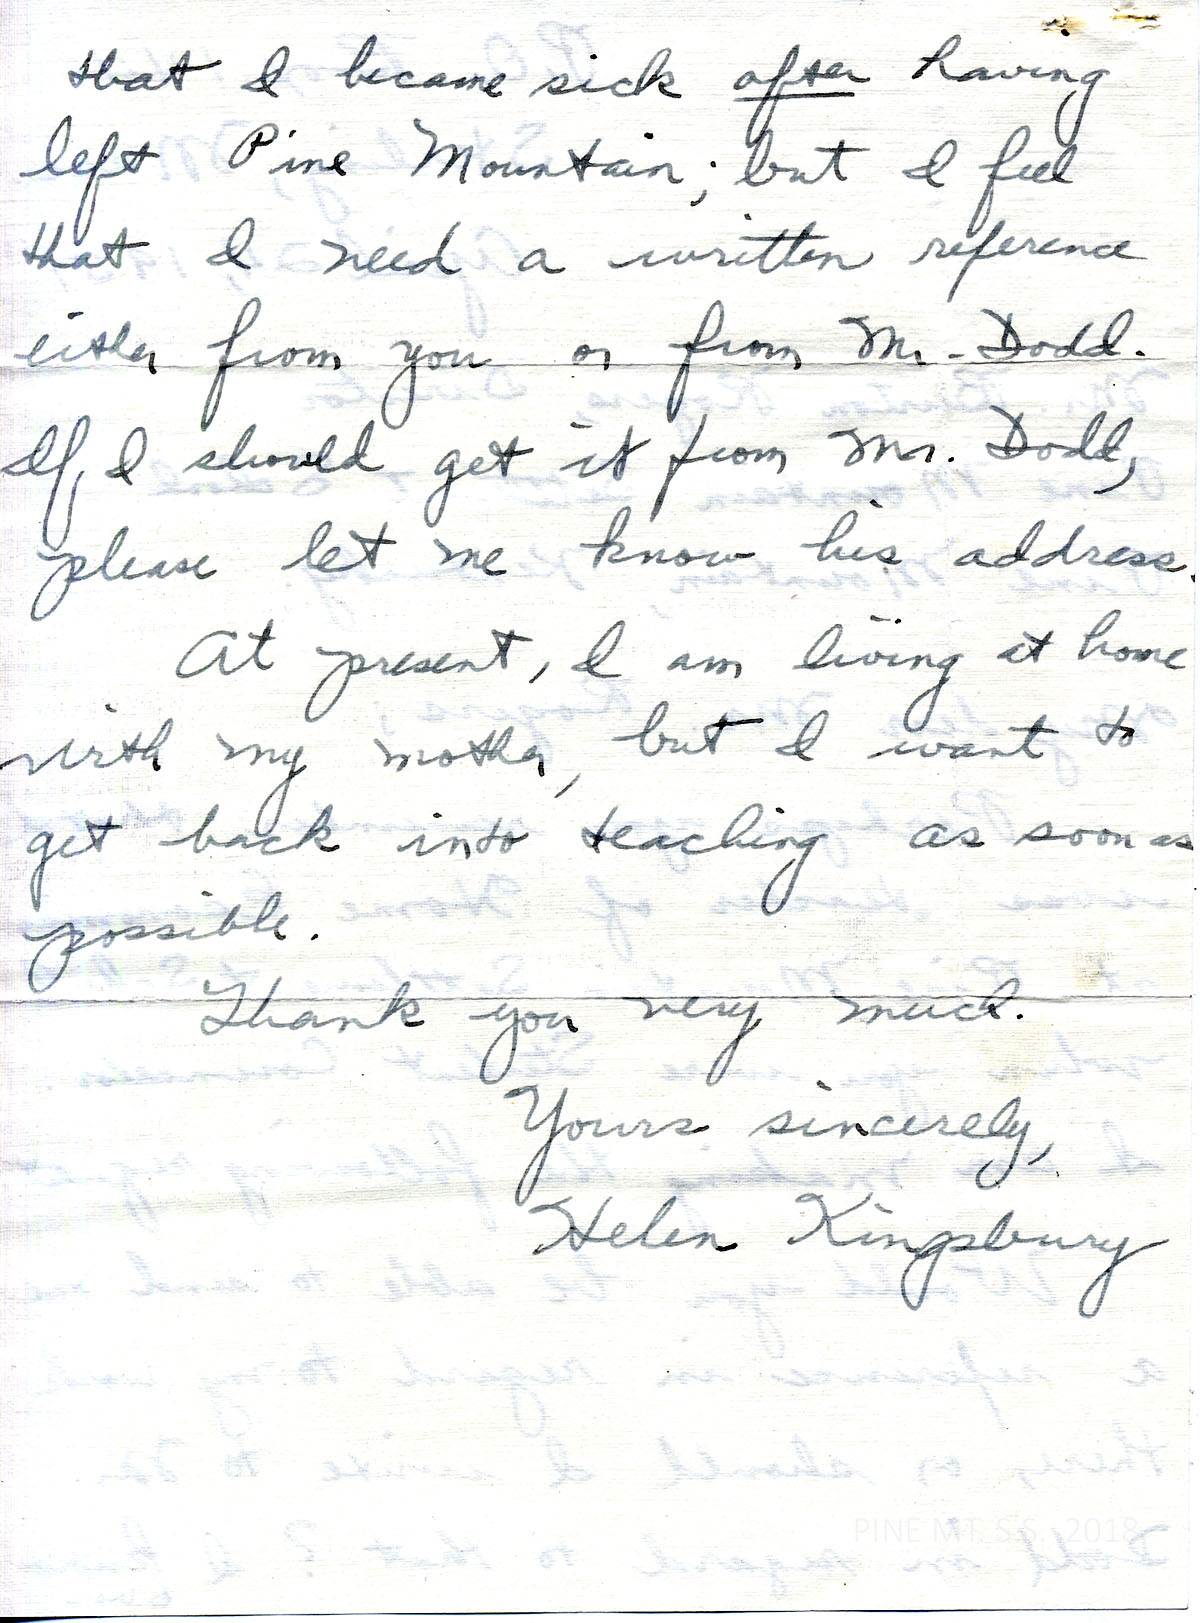 that I became sick after having
left Pine Mountain; but I feel
that I need a written reference
either from you or from Mr. Dodd.
If, I should get it from Mr. Dodd,
please let me know his address.
At present, I am living at home
with my mother, but I want to
get back into teaching as soon as
possible.
Thank you very much.
Yours sincerely,
Helen Kingsbury
PINE MT. S.S. 2018